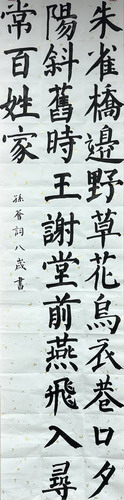 朱雀橋邊野草花烏衣巷口夕
陽斜舊時王謝堂前燕飛入尋
常百姓家
孫睿詞八歲書